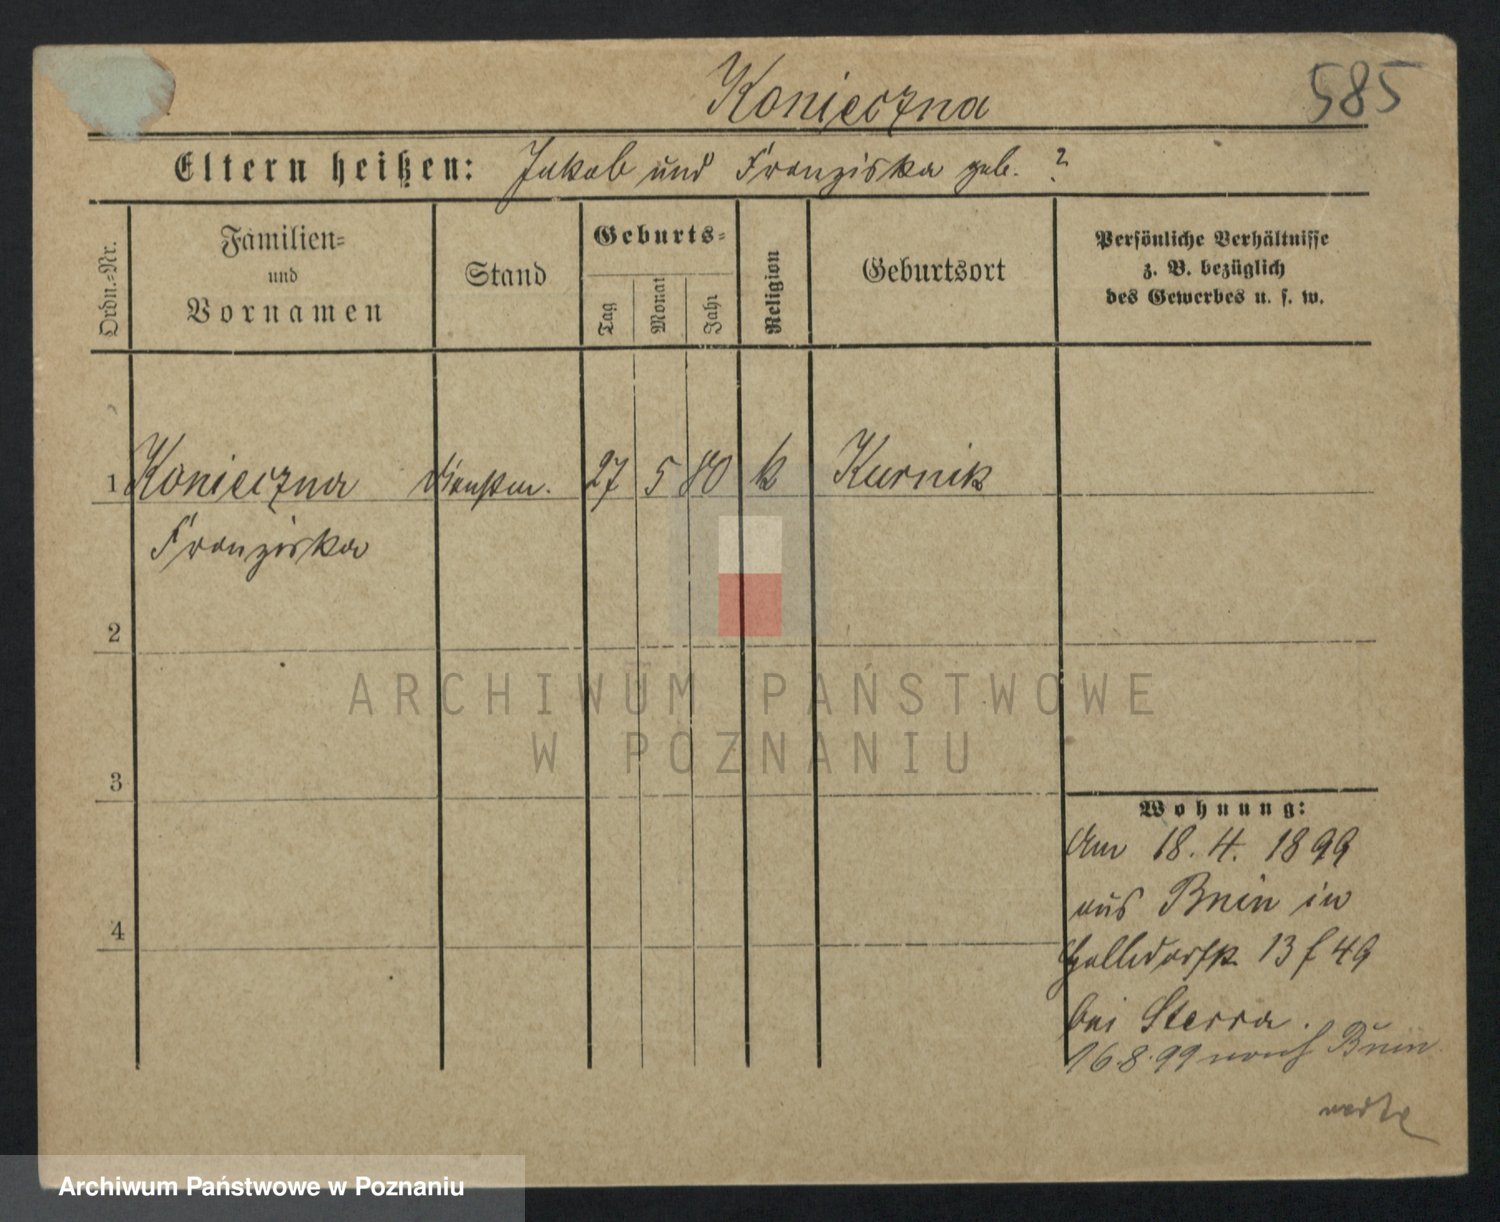 Konieczna
585
Eltern heißen: Jakob und Franziska geb. ?
Ordn.-Nr.
Familien-
und
Vornamen
Stand
Geburts-
Tag
Monat
Jahr
Religion
Geburtsort
Persönliche Verhältnisse
z. B. bezüglich
des Gewerbes u. s. w.
1 Konieczna Dienstm. 27 5 80 k Kurnik
Franziska
2
3
4
Wohnung:
Am 18. 4. 1899
aus Bnin in
13 f 49
bei Sterra.
16.8.99 nach Bnin
ARCHIWUM PAŃSTWOWE
W POZNANIU
Archiwum Państwowe w Poznaniu